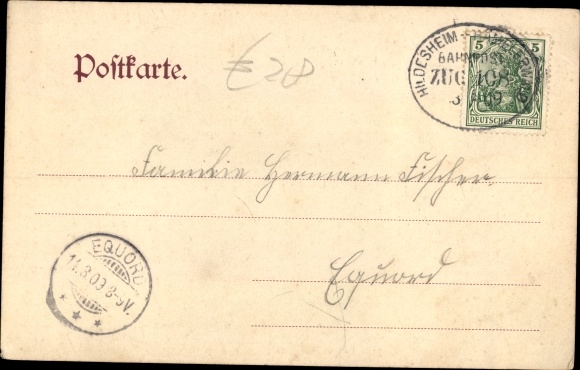 Postkarte.
€ 28
HILDESHEIM - HÄMELERWALD
BAHNPOST
ZUG 108
5 5
DEUTSCHES REICH
Familie Hermann Fischer.
Equord
EQUORD
11.8.09 8-9V.